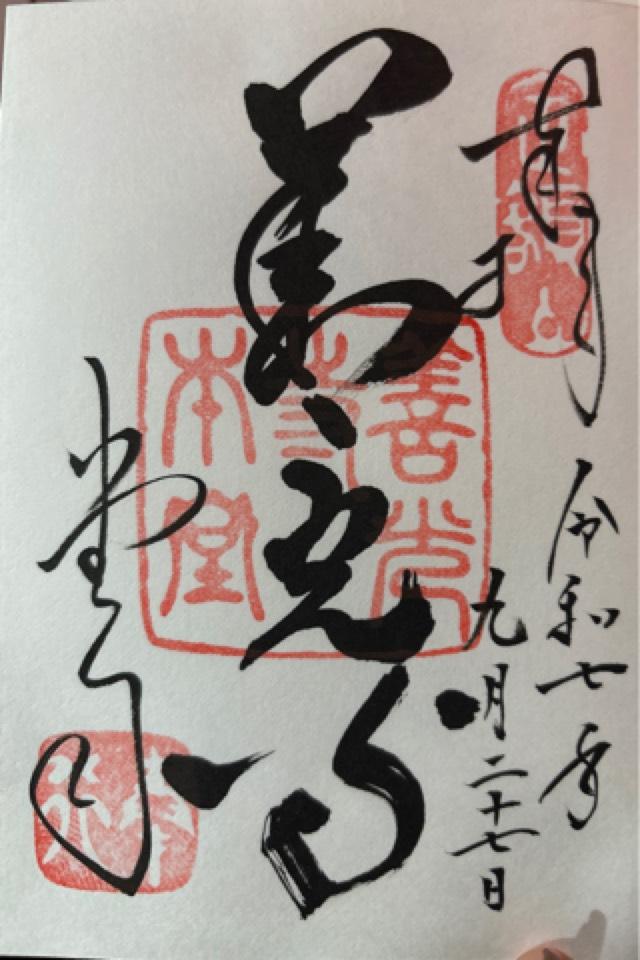 奉拝
令和七年
九月二十七日
善光寺
善光
寺
本堂